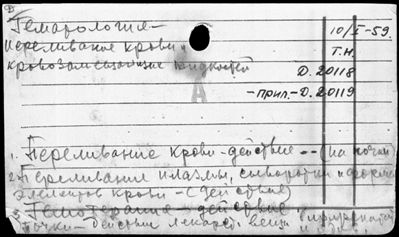 Гематология –
переливание крови и
кровозамещающие жидкостей
10/I-59.
Т.Н.
Д. 20118
-прил.-Д. 20119
А
1. Переливание крови-действие -- (на почки)
2. Переливание плазмы, сыворотки и форм.
элементов крови - (действие)
3. Гемотерапия - действие
Почки - действие лекарств. веществ